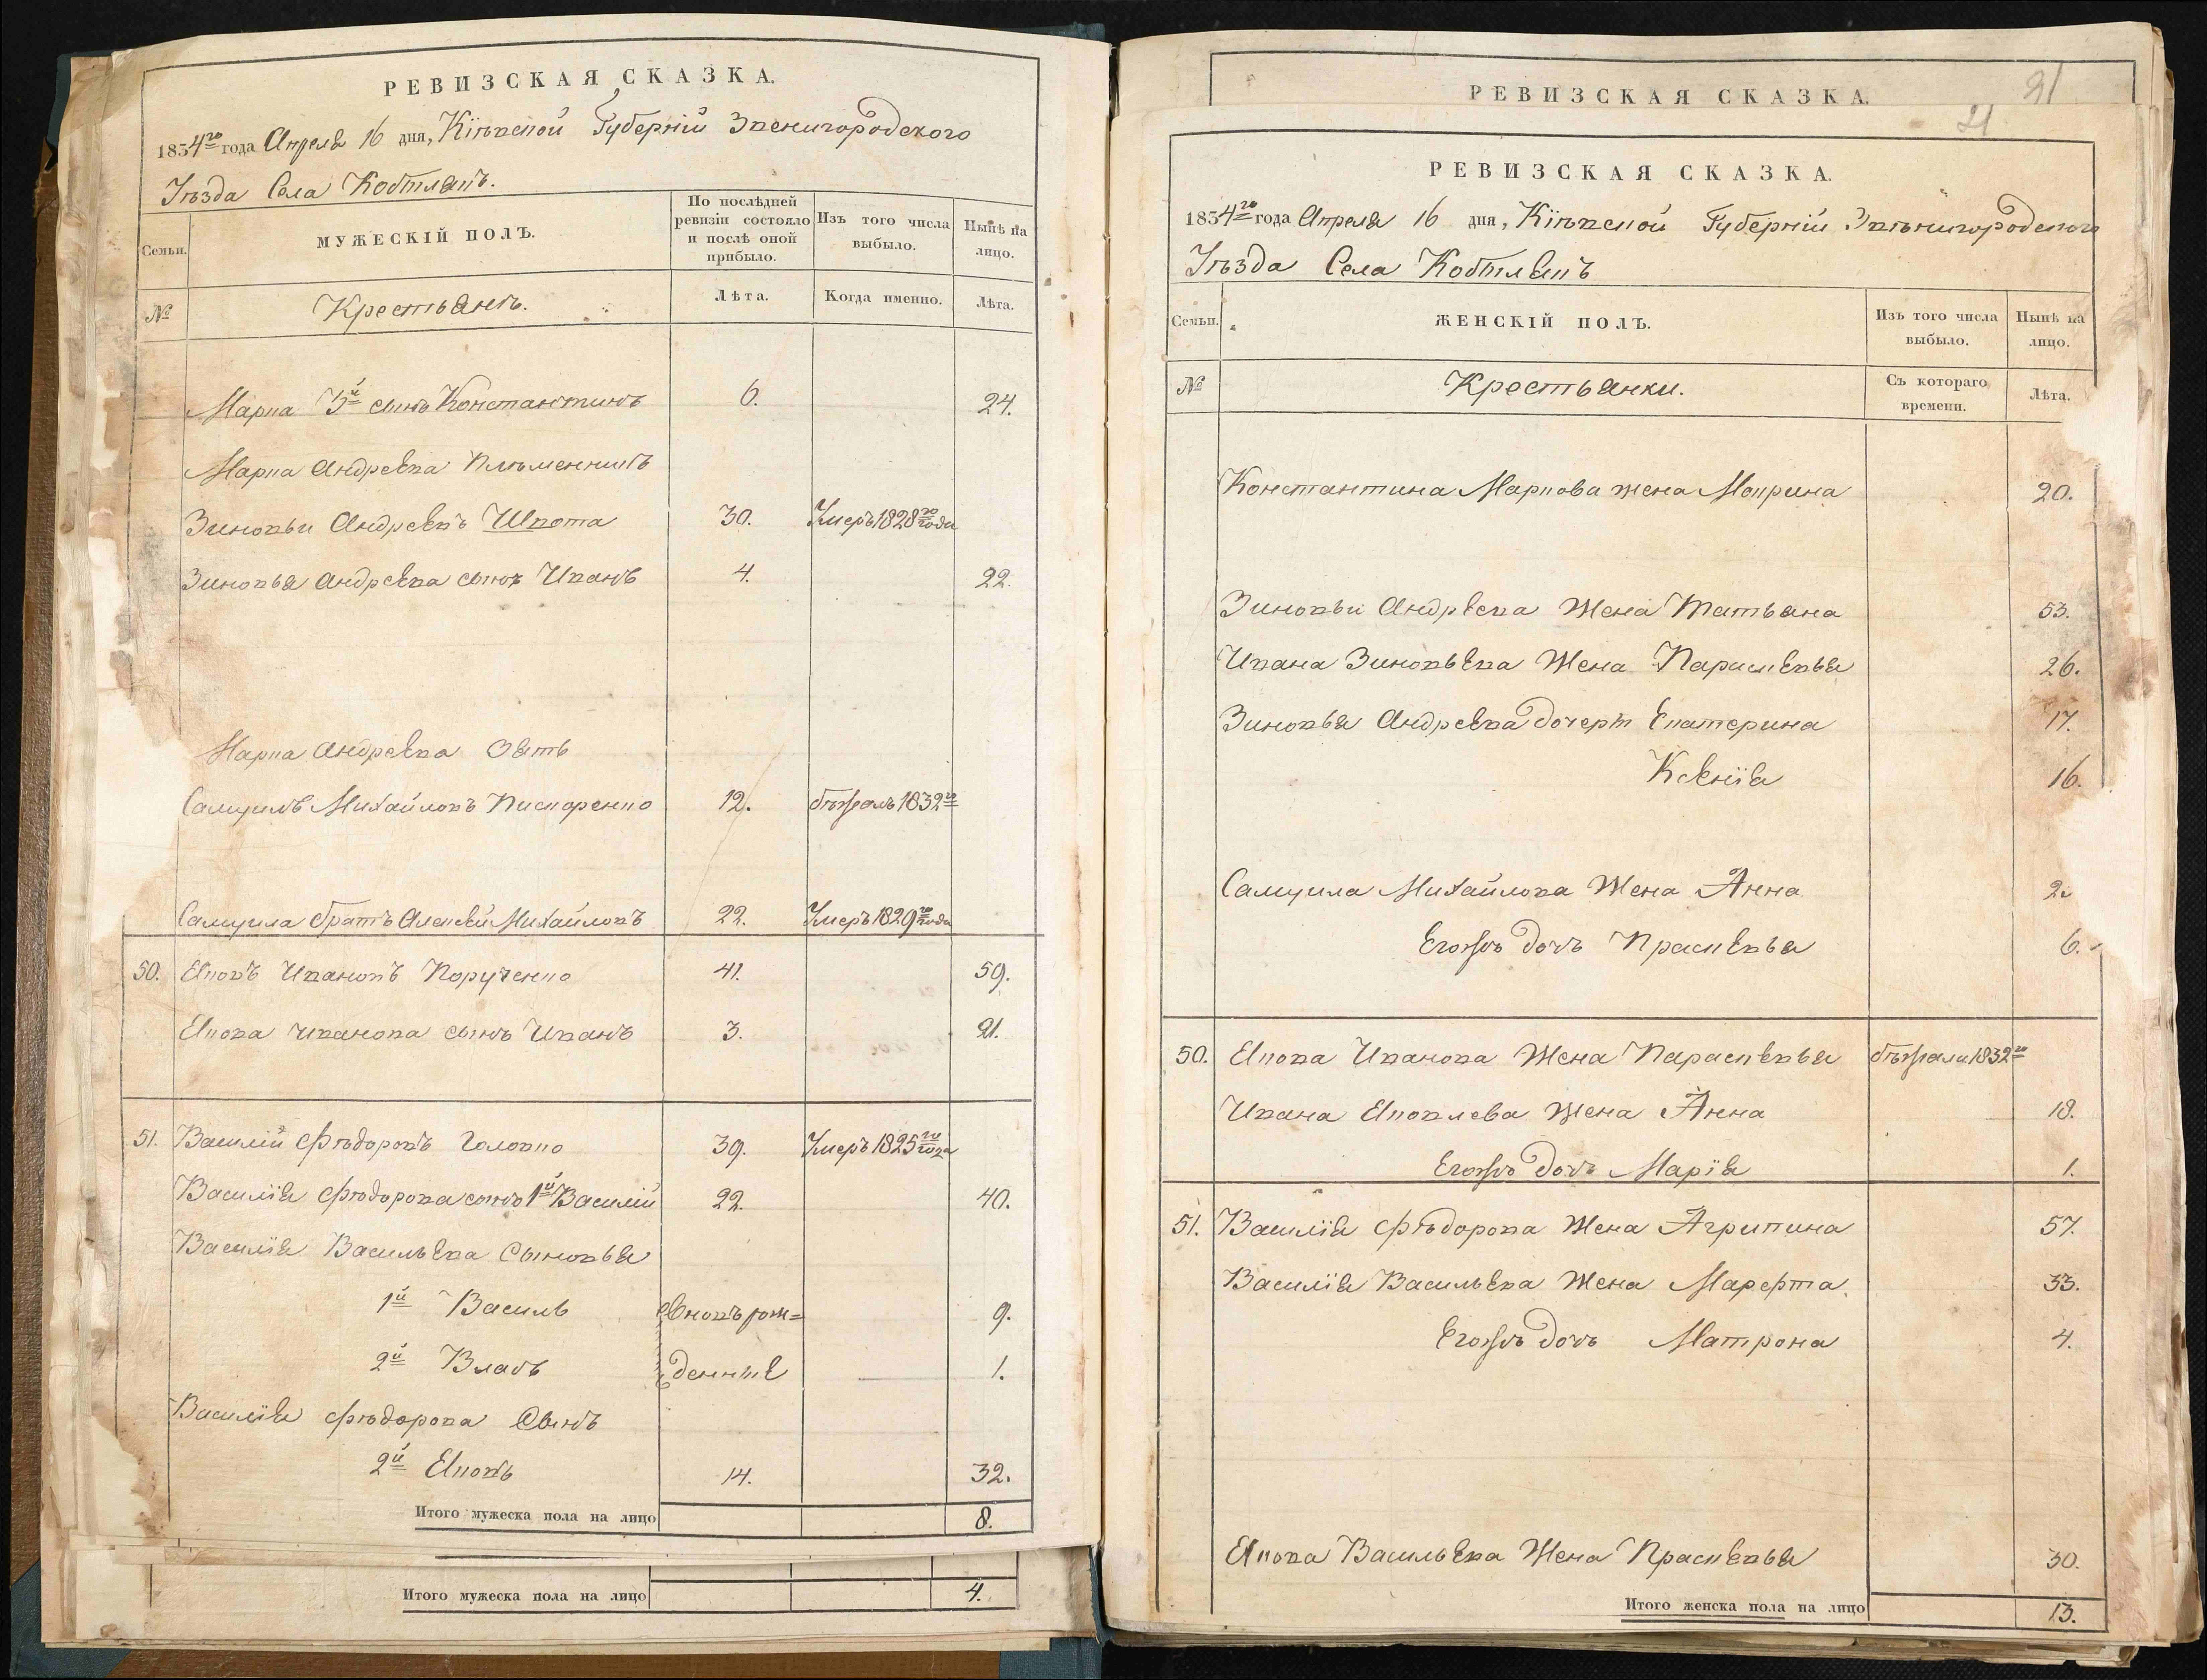 РЕВИЗСКАЯ СКАЗКА.
1834го года Апреля 16 дня, Кіевской Губерніи Звенигородского
Уѣзда Села
Семьи.
МУЖЕСКІЙ ПОЛЪ.
По послѣдней ревизіи состояло и послѣ оной прибыло.
Изъ того числа выбыло.
Нынѣ на лицо.
№
Крестьянъ.
Лѣта.
Когда именно.
Лѣта.
Марка 3й сынъ Константинъ 6. 24.
Марка Андреева Племенникъ
Зиновьи Андреевъ Шкота 30. Умеръ 1828го года
Зиновья Андреева сынъ Иванъ 4. 22.
Марка Андреева Зять
Самуилъ Михайловъ 12. бѣжалъ 1832го
Самуила братъ Алексей Михайловъ 22. Умеръ 1829го года
50. Яковъ Ивановъ Порученко 41. 59.
Якова Иванова сынъ Иванъ 3. 21.
51. Василій Фѣдоровъ Головко 39. Умеръ 1825го года
Василія Фѣдорова сынъ 1й Василій 22. 40.
Василія Васильева Сыновья
1й Василь вновъ рож= 9.
2й Власъ денные 1.
Василія Фѣдорова Сынъ
2й Яковъ 14. 32.
Итого мужеска пола на лицо 8.
Итого мужеска пола на лицо 4.
РЕВИЗСКАЯ СКАЗКА.
21
21
РЕВИЗСКАЯ СКАЗКА.
1834го года Апреля 16 дня, Кіевской Губерніи Звенигородского
Уѣзда Села
Семьи.
ЖЕНСКІЙ ПОЛЪ.
Изъ того числа выбыло.
Нынѣ на лицо.
№
Крестьянки.
Съ котораго времени.
Лѣта.
Константина Маркова жена Мокрина 20.
Зиновьи Андреева Жена Татьяна 53.
Ивана Зиновьева Жена Парасkевья 26.
Зиновья Андреева дочери Екатерина 17.
Ксенія 16.
Самуила Михайлова Жена Анна
Егожъ дочъ Прасkевья 6.
50. Якова Иванова Жена Параскевья бѣжала 1832го
Ивана Яковлева Жена Анна 18.
Егожъ дочъ Марія 1.
51. Василія Фѣдорова Жена Агрипина 57.
Василія Васильева Жена Марфта 33.
Егожъ дочъ Матрона 4.
Якова Васильева Жена Праскевья 30.
Итого женска пола на лицо 13.